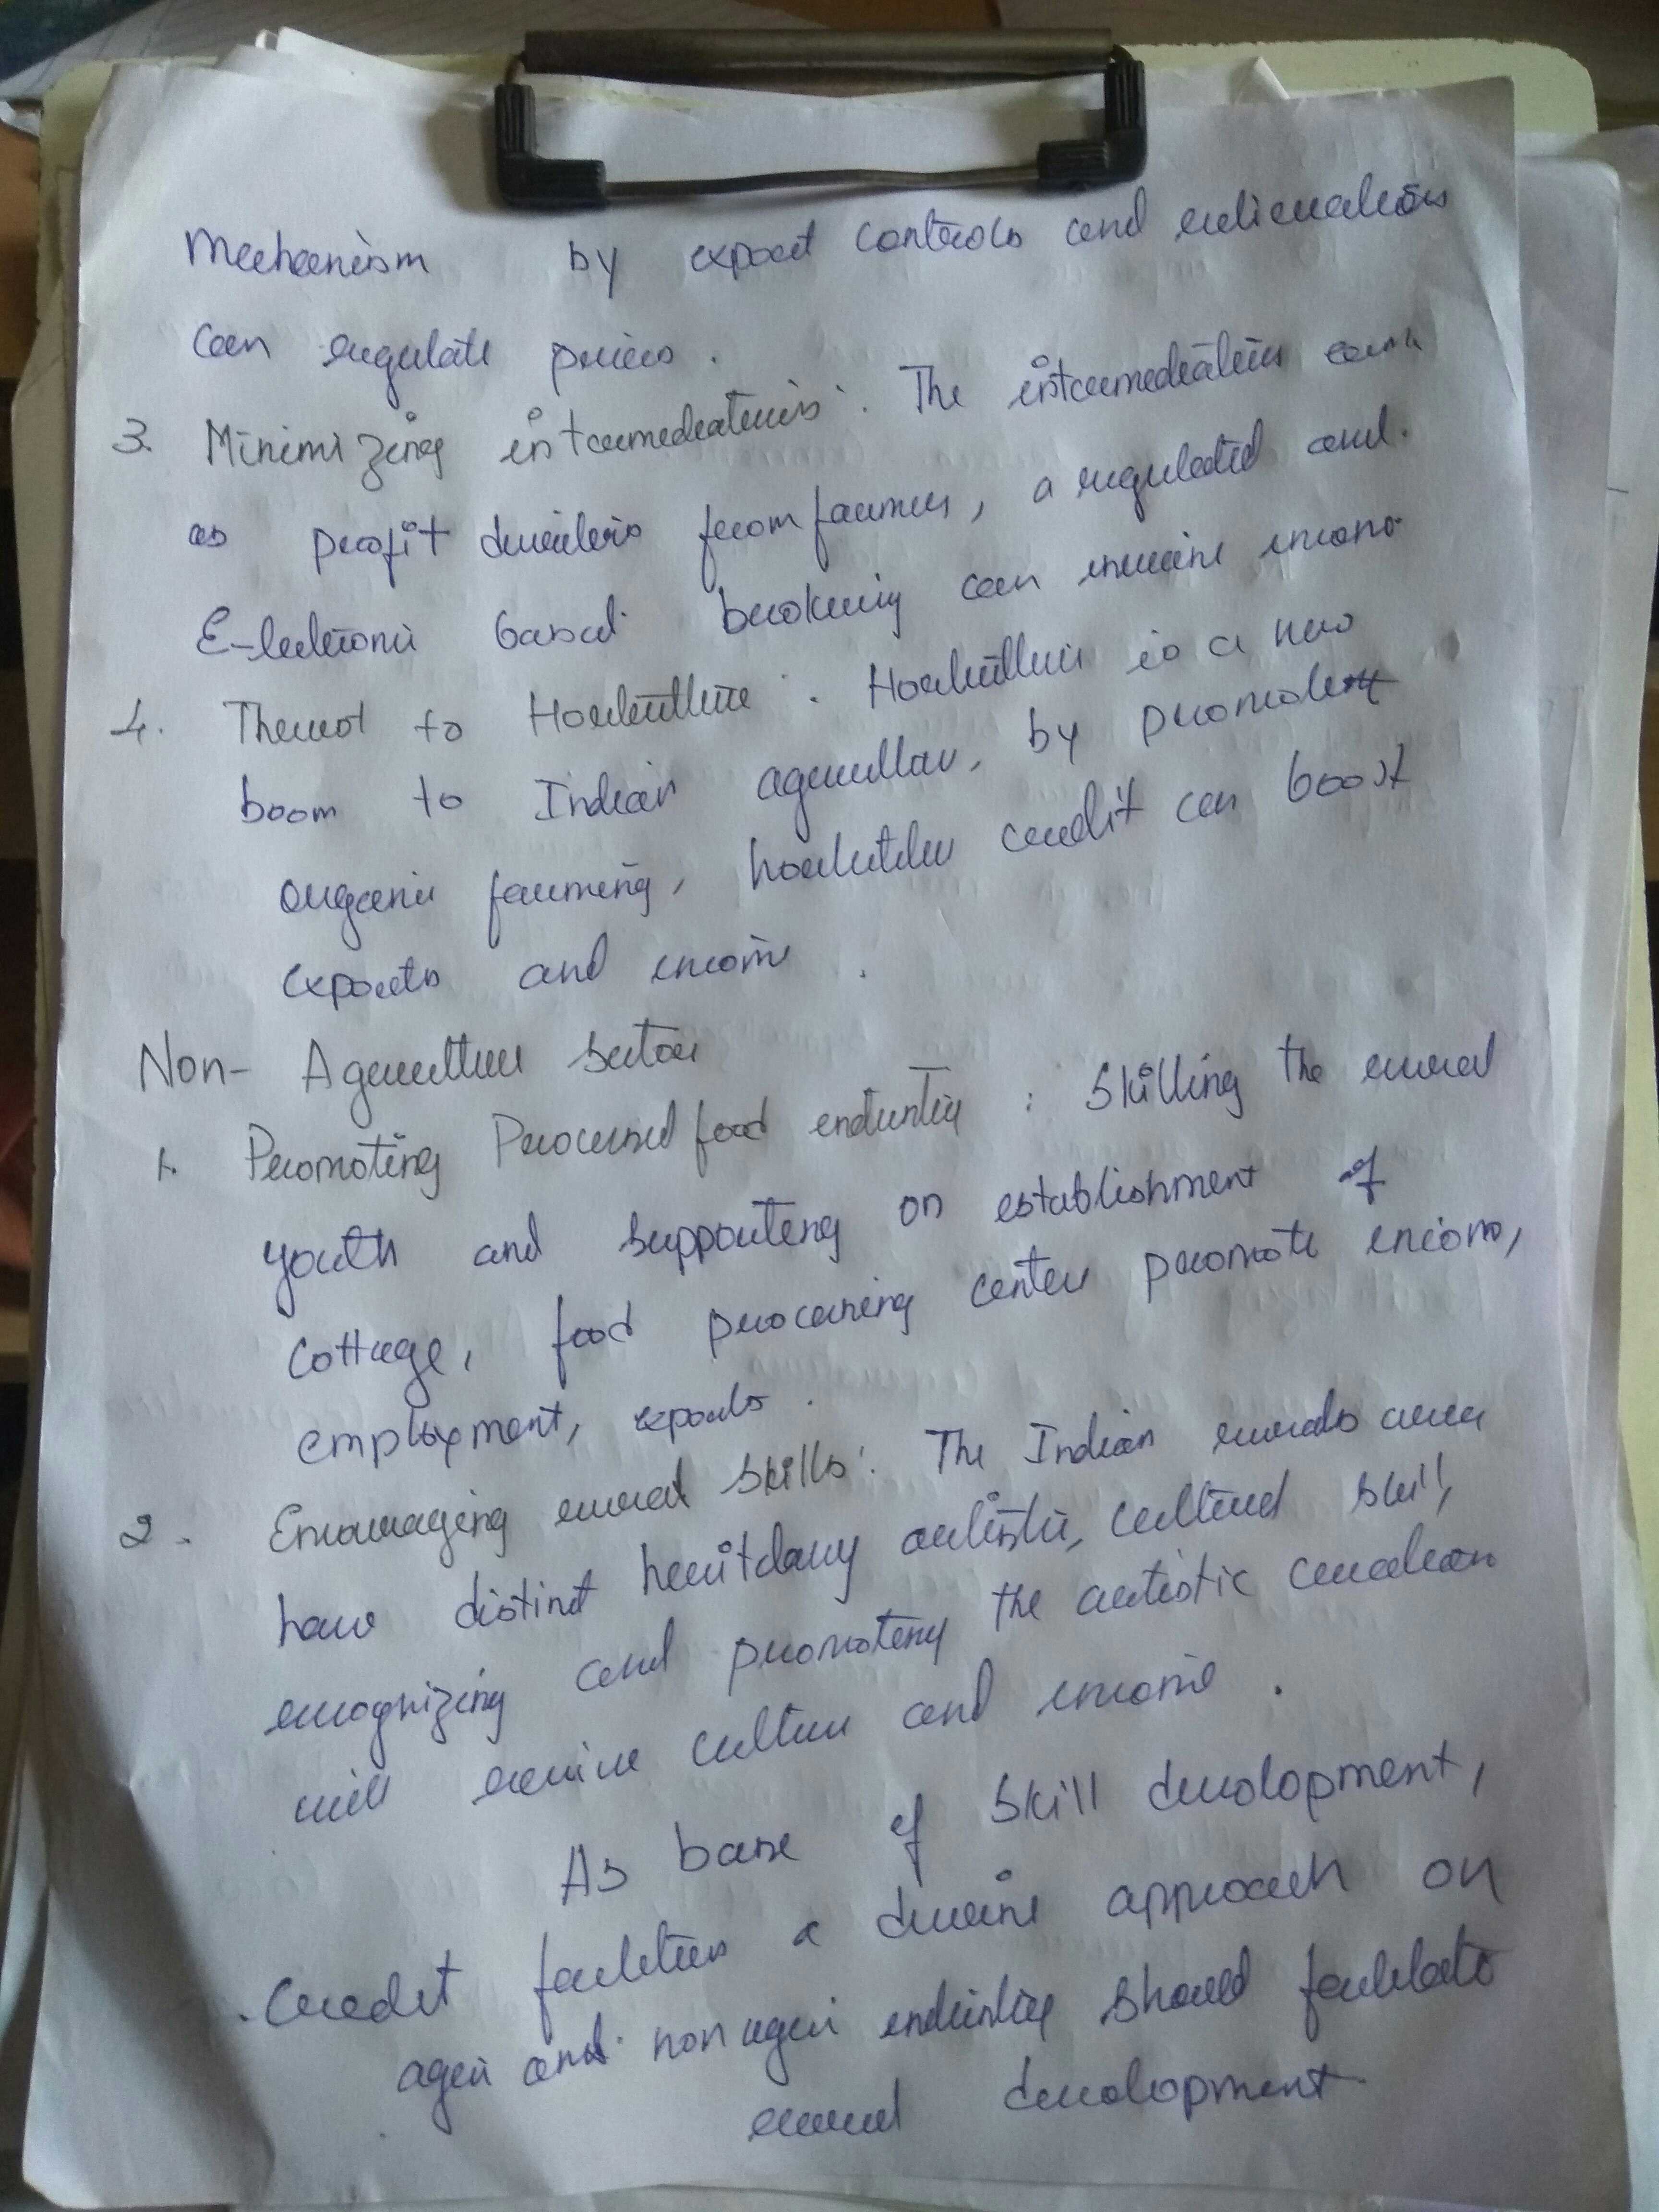 Mechanism by export controls and estimations
can regulate prices.
3. Minimizing intermediateries: The intermediateries
as profit from farmers, a regulated and
E-lectronic based brokering can income
4. Thrust to Horticulture: Horticulture is a new
boom to Indian by
organic farming, credit can boost
exports and income.
Non- Agriculture sector
1. Promoting Processed food industry: Skilling the rural
youth and supporting on establishment of
cottage, food processing center promote income,
employment, exports.
2. Encouraging rural skills: The Indian rurals area
have distinct heritdary artistic, cultural skill,
recognizing and promoting the artistic
will revive culture and income.
As base of skill development,
credit facilities a approach on
agri and non agri industry should facilitate
rural development